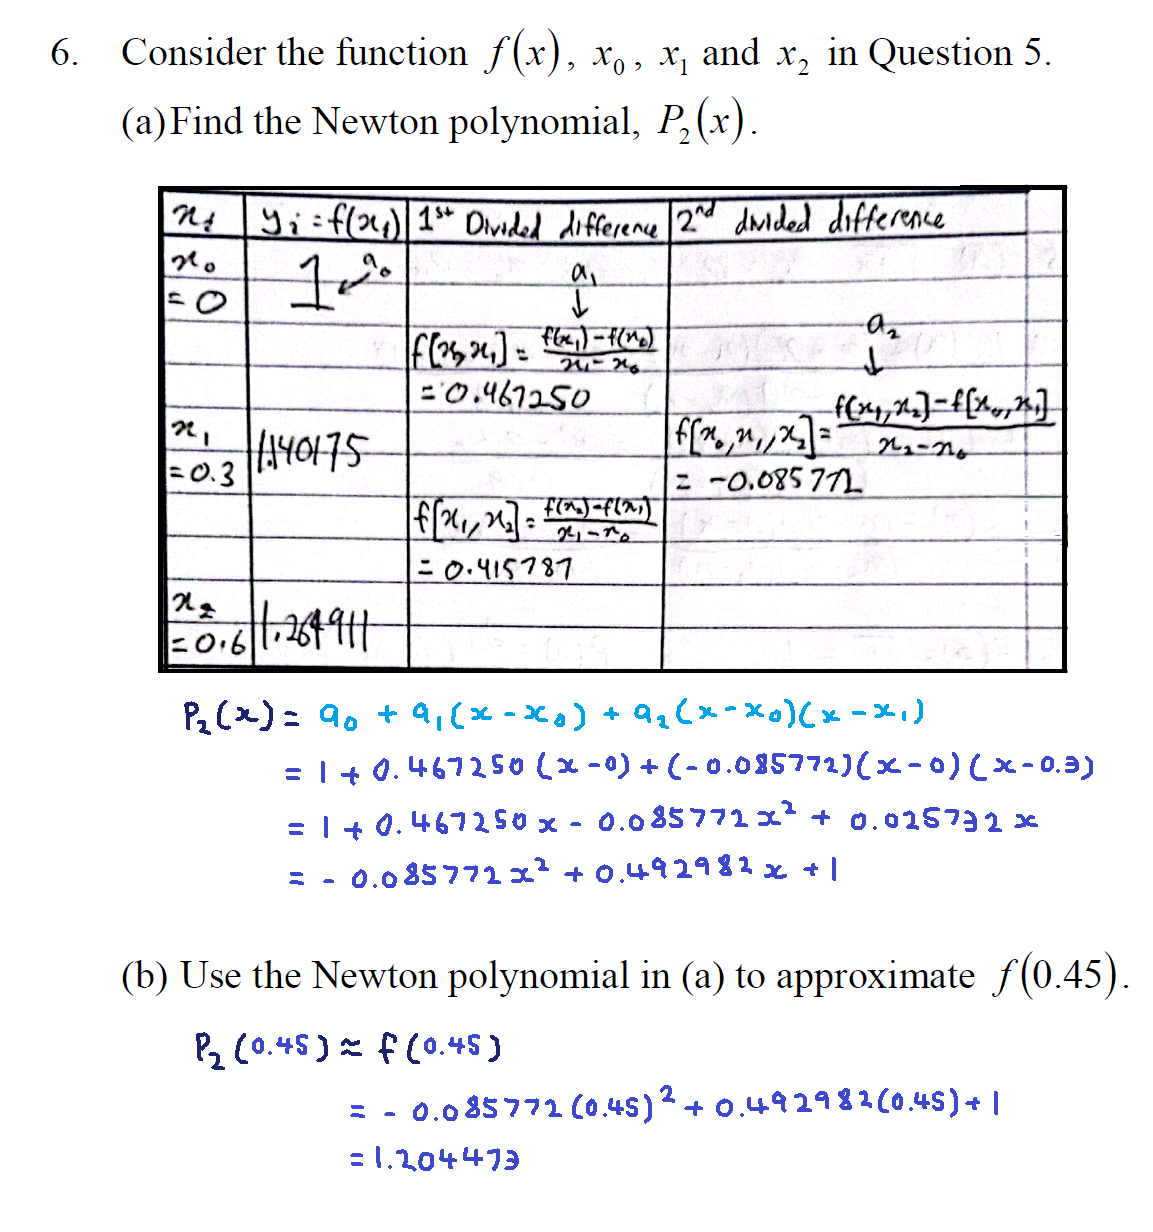 6. Consider the function f(x), x₀, x₁ and x₂ in Question 5.
(a) Find the Newton polynomial, P₂(x).
xᵢ | yᵢ = f(xᵢ) | 1st Divided difference | 2nd divided difference
x₀ = 0 | 1 ← a₀
a₁ ↓
f[x₀, x₁] = (f(x₁) - f(x₀))/(x₁ - x₀)
= 0.467250
x₁ = 0.3 | 1.140175
a₂ ↓
f[x₀, x₁, x₂] = (f[x₁, x₂] - f[x₀, x₁])/(x₂ - x₀)
= -0.085772
f[x₁, x₂] = (f(x₂) - f(x₁))/(x₁ - x₀)
= 0.415787
x₂ = 0.6 | 1.264911
P₂(x) = a₀ + a₁(x - x₀) + a₂(x - x₀)(x - x₁)
= 1 + 0.467250 (x - 0) + (-0.085772)(x - 0)(x - 0.3)
= 1 + 0.467250 x - 0.085772 x² + 0.025732 x
= - 0.085772 x² + 0.492982 x + 1
(b) Use the Newton polynomial in (a) to approximate f(0.45).
P₂(0.45) ≈ f(0.45)
= - 0.085772 (0.45)² + 0.492982 (0.45) + 1
= 1.204473